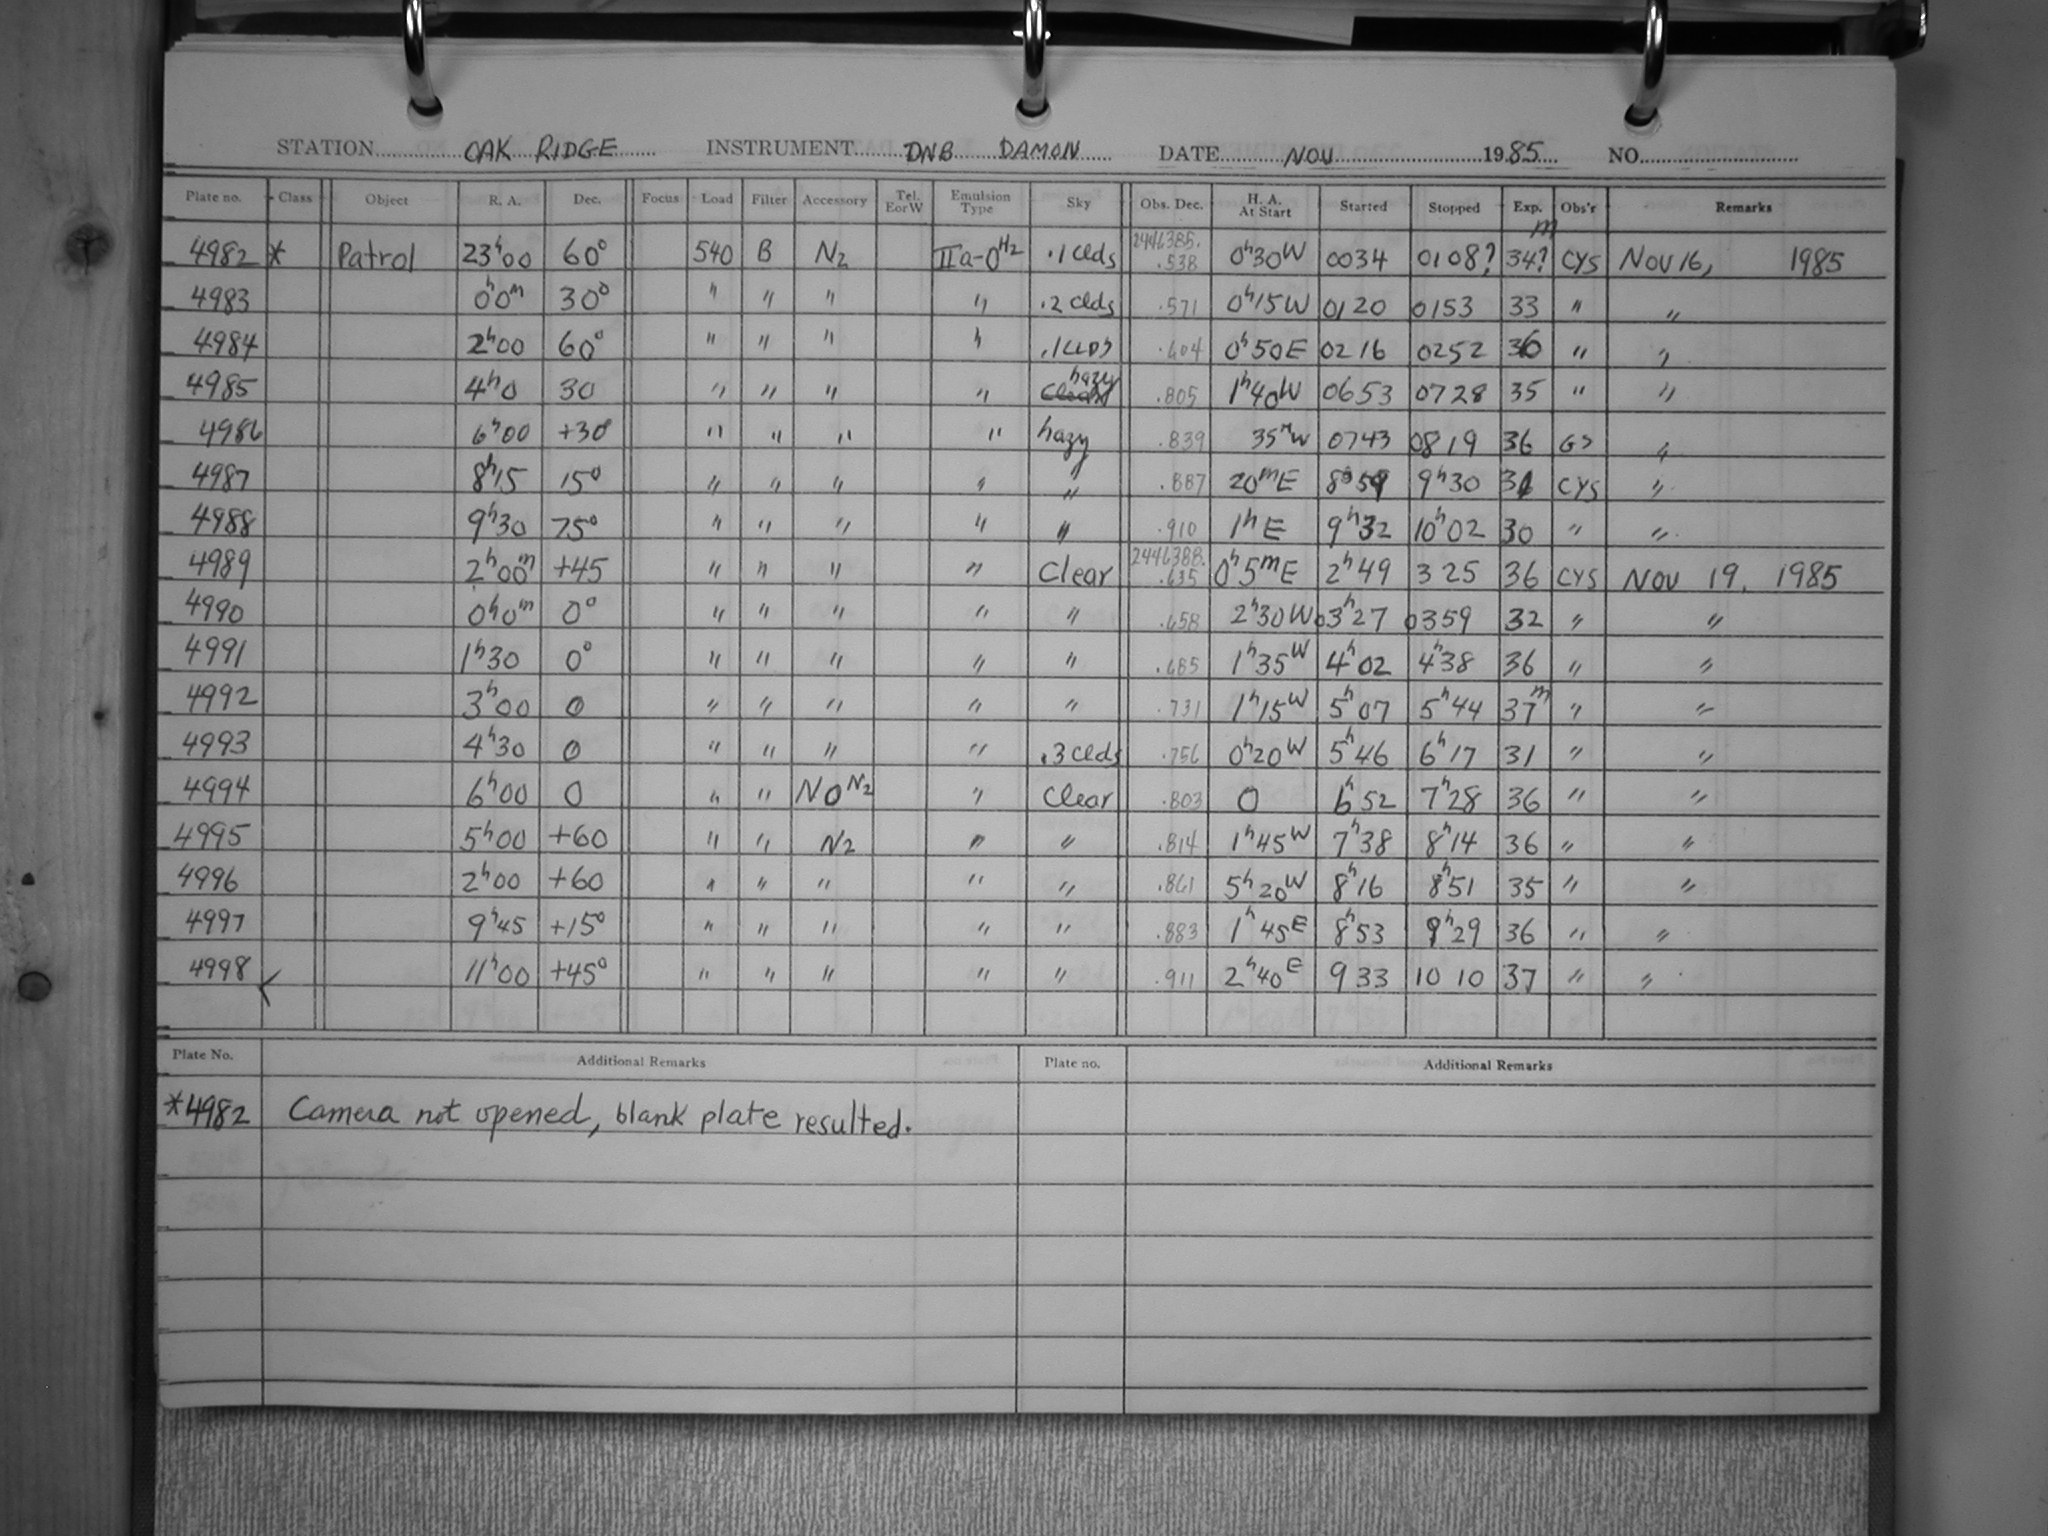 STATION OAK RIDGE INSTRUMENT DNB DAMON DATE NOV 1985 NO.
Plate no. Class Object R. A. Dec. Focus Load Filter Accessory Tel. E or W Emulsion Type Sky Obs. Dec. H. A. At Start Started Stopped Exp. Obs'r Remarks
4982 * Patrol 23h00 60° 540 B N2 IIa-O H2 .1 clds 2446385. .538 0h30W 0034 0108? 34m? CYS Nov 16, 1985
4983 0h0m 30° " " " " .2 clds .571 0h15W 0120 0153 33 " "
4984 2h00 60° " " " " .1 CLDS .604 0h50E 0216 0252 36 " "
4985 4h0 30 " " " " hazy .805 1h40W 0653 0728 35 " "
4986 6h00 +30° " " " " hazy .839 35mW 0743 0819 36 "
4987 8h15 15° " " " " " .887 20mE 8h59 9h30 31 CYS "
4988 9h30 75° " " " " " .910 1hE 9h32 10h02 30 " "
4989 2h00m +45 " " " " Clear 2446388. .635 0h5mE 2h49 325 36 CYS NOV 19, 1985
4990 0h0m 0° " " " " " .658 2h30W 03h27 0359 32 " "
4991 1h30 0° " " " " " .685 1h35W 4h02 4h38 36 " "
4992 3h00 0 " " " " " .731 1h15W 5h07 5h44 37m " "
4993 4h30 0 " " " " .3 clds .756 0h20W 5h46 6h17 31 " "
4994 6h00 0 " " NO N2 " Clear .803 0 6h52 7h28 36 " "
4995 5h00 +60 " " N2 " " .814 1h45W 7h38 8h14 36 " "
4996 2h00 +60 " " " " " .861 5h20W 8h16 8h51 35 " "
4997 9h45 +15° " " " " " .883 1h45E 8h53 9h29 36 " "
4998 11h00 +45° " " " " " .911 2h40E 9 33 10 10 37 " "
Plate No. Additional Remarks Plate no. Additional Remarks
*4982 Camera not opened, blank plate resulted.